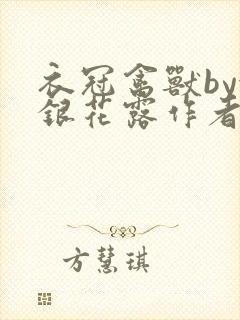 衣冠禽獸by
銀花露作者
方慧琪